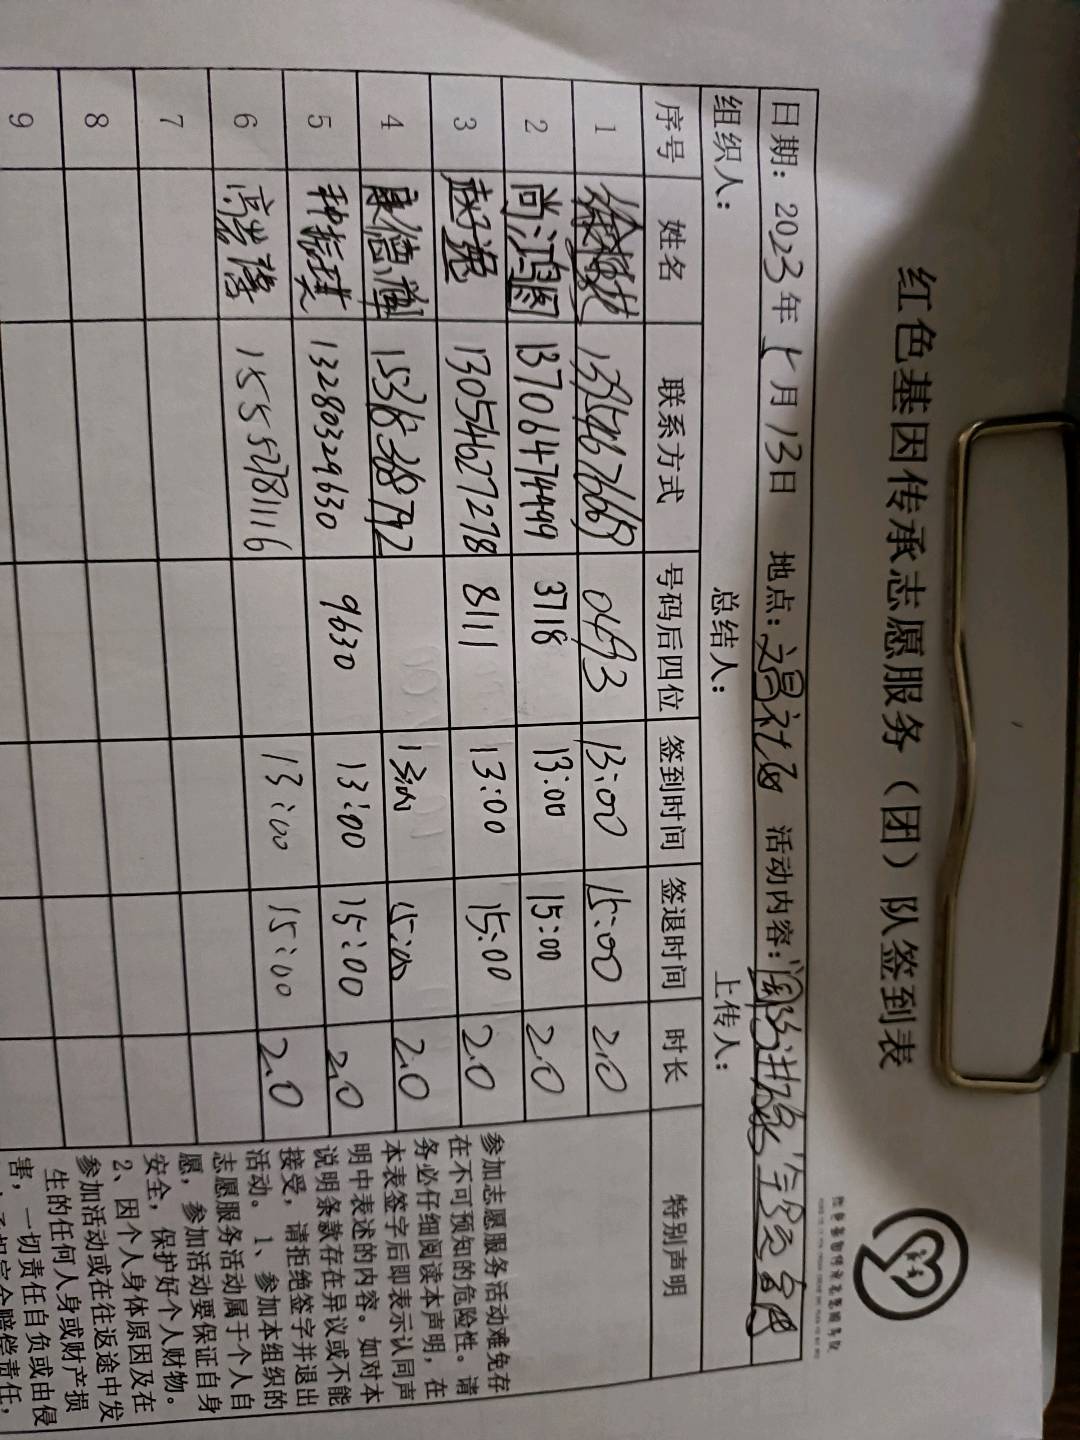 红色基因传承志愿服务（团）队签到表
日期：2023年 月13日 地点： 活动内容：
组织人： 总结人： 上传人：
序号 姓名 联系方式 号码后四位 签到时间 签退时间 时长 特别声明
1 0493 13:00 15:00 2.0
2 尚鸿图 13706474499 3718 13:00 15:00 2.0
3 13054627278 8111 13:00 15:00 2.0
4 康德 13:00 15:00 2.0
5 种振琪 13280329630 9630 13:00 15:00 2.0
6 15552781116 13:00 15:00 2.0
7
8
9
参加志愿服务活动难免存
在不可预知的危险性。请
务必仔细阅读本声明，在
本表签字后即表示认同声
明中表述的内容。如对本
说明条款存在异议或不能
接受，请拒绝签字并退出
活动。1、参加本组织的
志愿服务活动属于个人自
愿，参加活动要保证自身
安全，保护好个人财物。
2、因个人身体原因及在
参加活动或在往返途中发
生的任何人身或财产损
害，一切责任自负或由侵